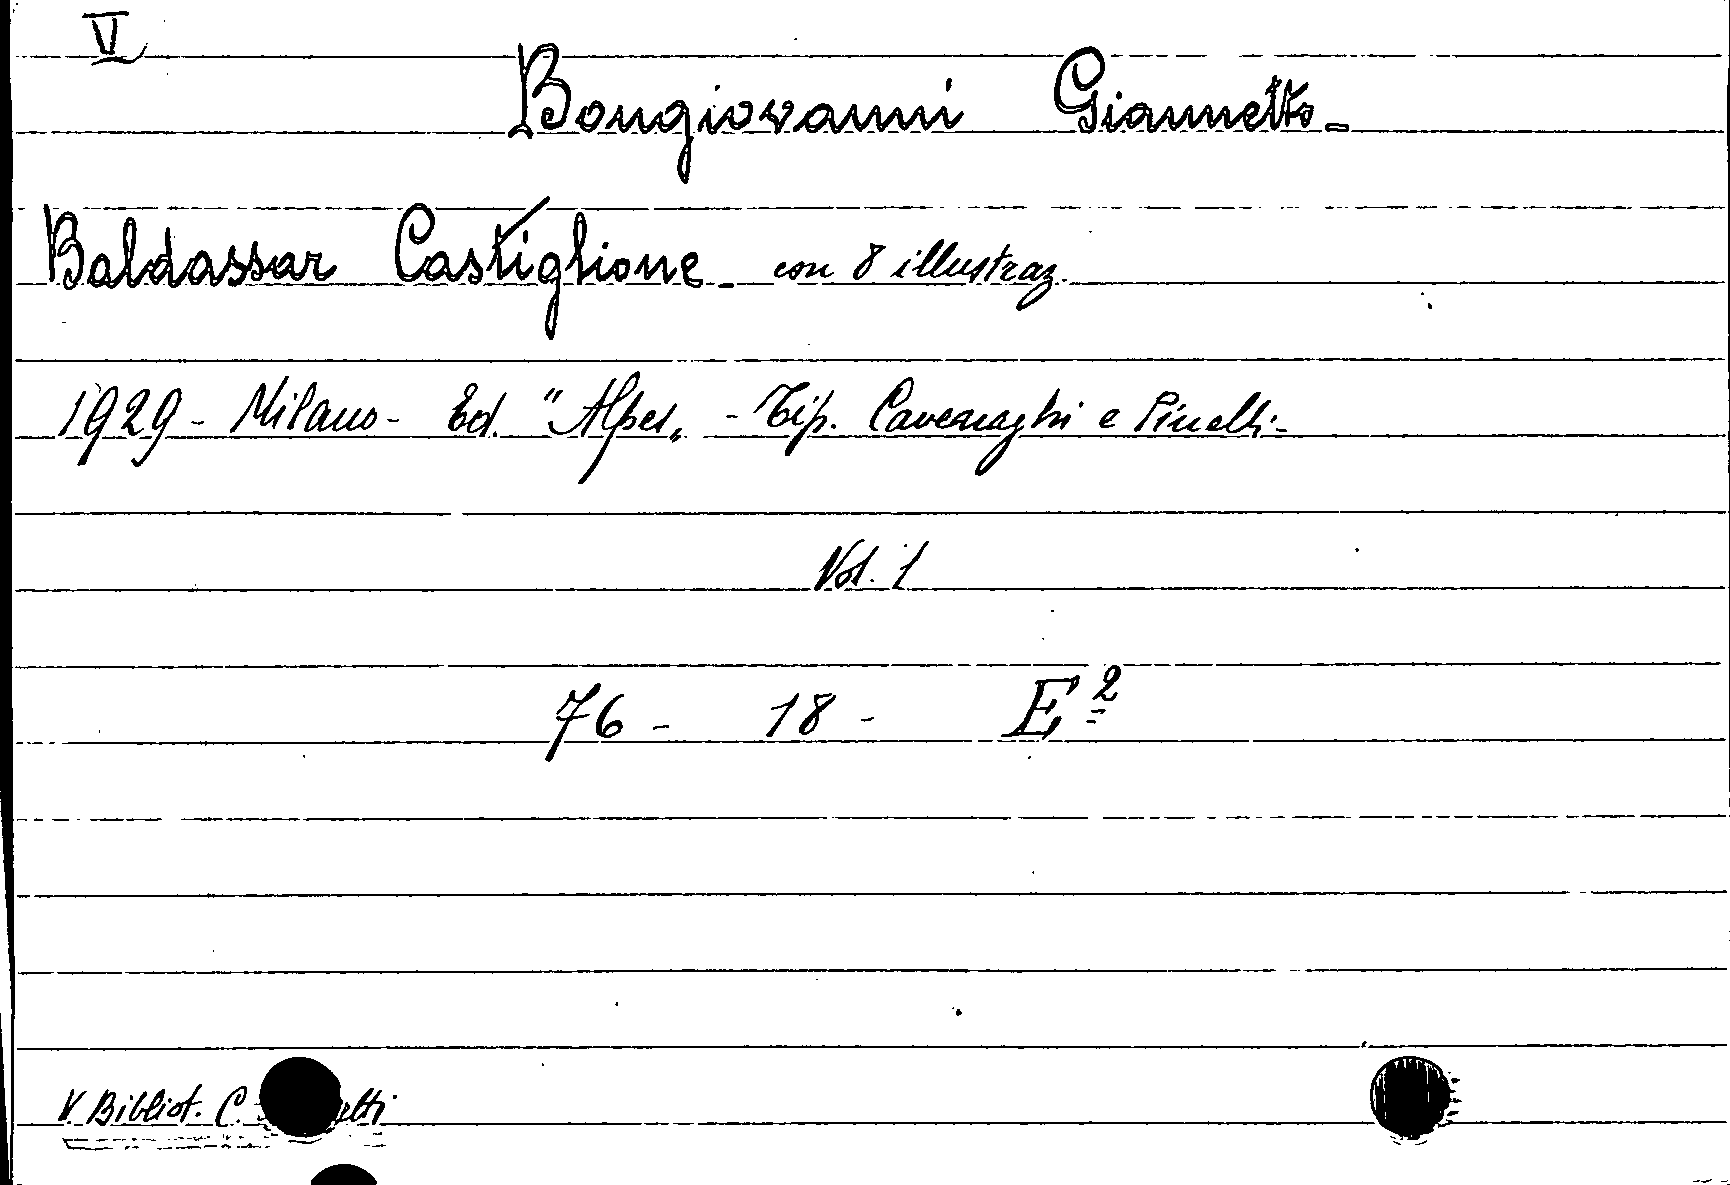 V
Bongiovanni Giannetto-
Baldassar Castiglione- con 8 illustraz.
1929- Milano- Ed. "Alpes„ - Tip. Cavenaghi e Pinelli-
Vol. 1
76 - 18 - E²
V. Bibliot. C.